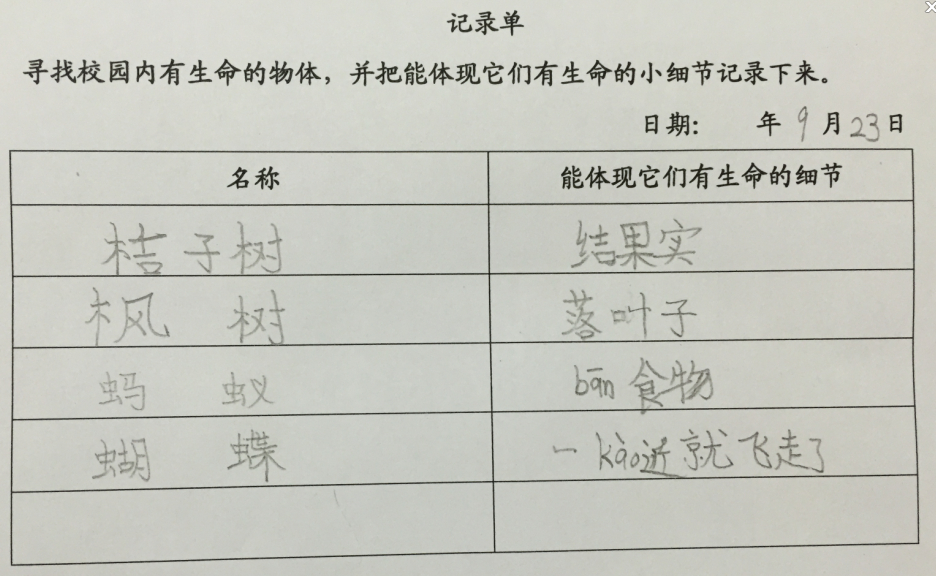 记录单
寻找校园内有生命的物体，并把能体现它们有生命的小细节记录下来。
日期: 年 9 月 23 日
名称 能体现它们有生命的细节
桔子树 结果实
枫树 落叶子
蚂蚁 bān食物
蝴蝶 一kào近就飞走了